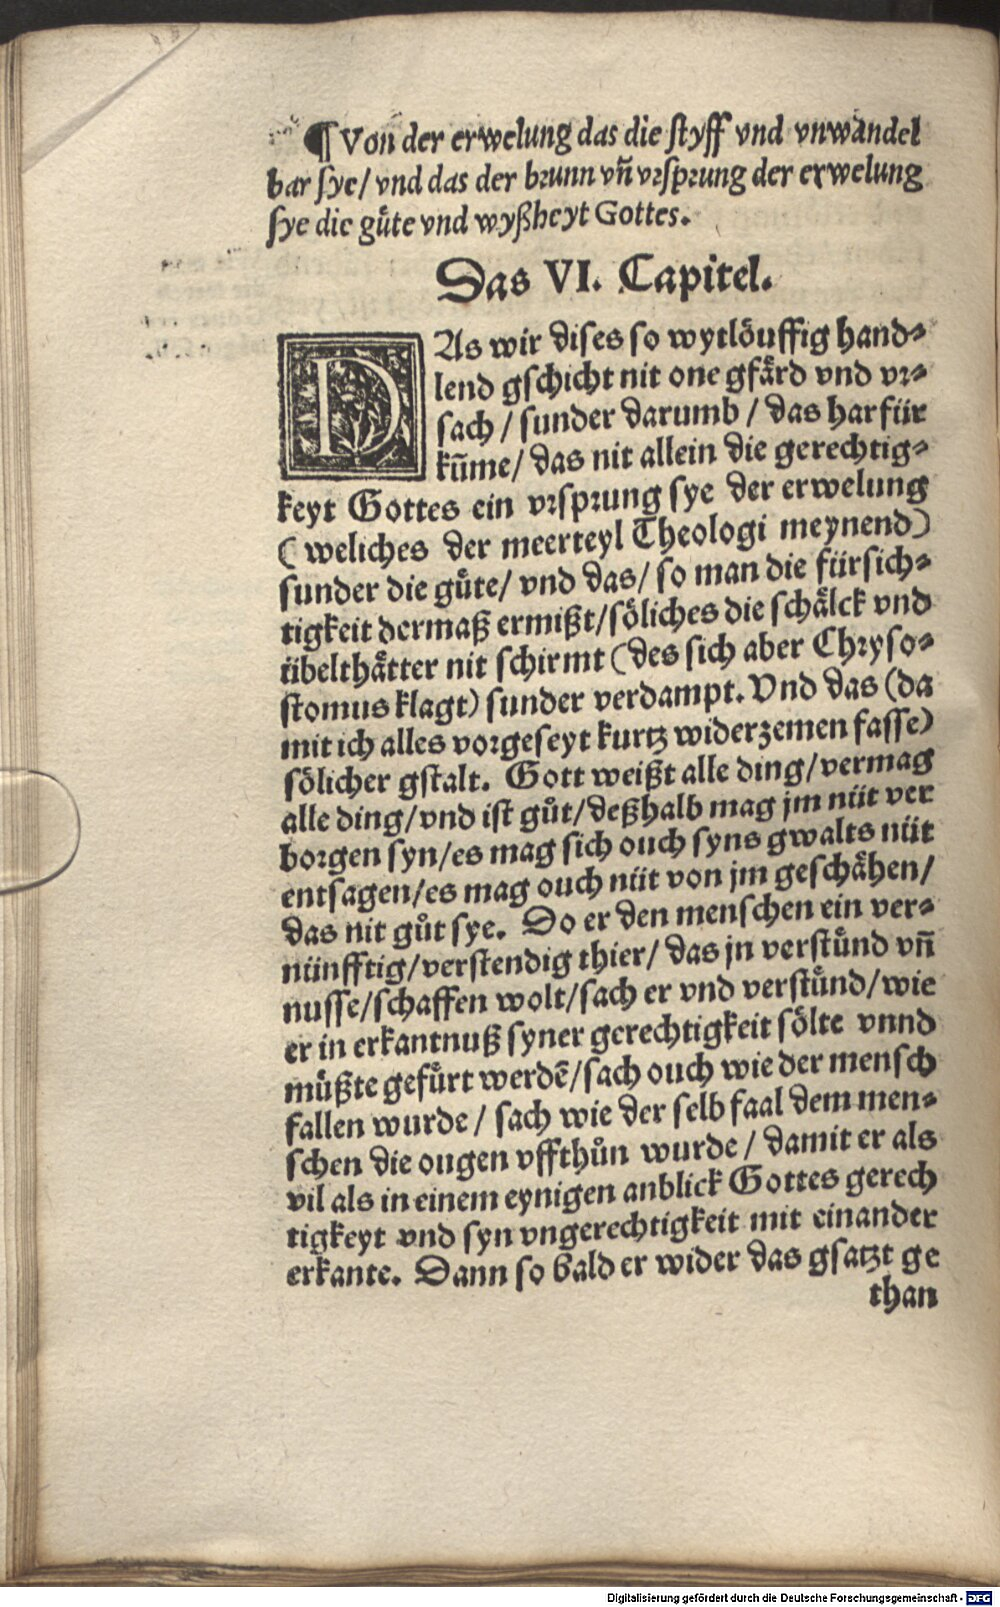 ¶ Von der erwelung das die styff vnd vnwandel
bar sye/ vnd das der brunn vñ vrsprung der erwelung
sye die gůte vnd wyßheyt Gottes.
Das VI. Capitel.
DAs wir dises so wytlöuffig hand⸗
lend gschicht nit one gfård vnd vr⸗
sach / sunder darumb / das harfür
kūme/ das nit allein die gerechtig⸗
keyt Gottes ein vrsprung sye der erwelung
( weliches der meerteyl Theologi meynend)
sunder die gůte/ vnd das/ so man die fürsich⸗
tigkeit dermaß ermißt/söliches die schålck vnd
übelthåtter nit schirmt (des sich aber Chryso⸗
stomus klagt) sunder verdampt. Vnd das (da
mit ich alles vorgeseyt kurtz widerzemen fasse)
sölicher gstalt. Gott weißt alle ding/vermag
alle ding/vnd ist gůt/deßhalb mag jm nüt ver
borgen syn/es mag sich ouch syns gwalts nüt
entsagen/es mag ouch nüt von jm geschåhen/
das nit gůt sye. Do er den menschen ein ver⸗
nünfftig/verstendig thier/ das jn verstůnd vñ
nusse/schaffen wolt/sach er vnd verstůnd/wie
er in erkantnuß syner gerechtigkeit sölte vnnd
müßte gefůrt werdē/sach ouch wie der mensch
fallen wurde / sach wie der selb faal dem men⸗
schen die ougen vffthůn wurde / damit er als
vil als in einem eynigen anblick Gottes gerech
tigkeyt vnd syn vngerechtigkeit mit einander
erkante. Dann so bald er wider das gsatzt ge
than
Digitalisierung gefördert durch die Deutsche Forschungsgemeinschaft - DFG